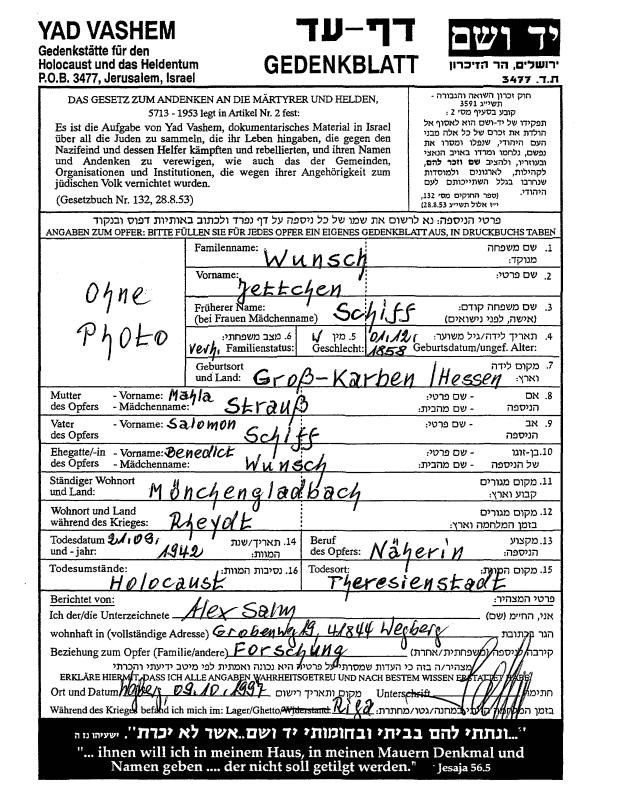 YAD VASHEM
Gedenkstätte für den
Holocaust und das Heldentum
P.O.B. 3477, Jerusalem, Israel
דף-עד
GEDENKBLATT
יד ושם
ירושלים, הר הזיכרון
ת.ד. 3477
DAS GESETZ ZUM ANDENKEN AN DIE MÄRTYRER UND HELDEN,
5713 - 1953 legt in Artikel Nr. 2 fest:
Es ist die Aufgabe von Yad Vashem, dokumentarisches Material in Israel
über all die Juden zu sammeln, die ihr Leben hingaben, die gegen den
Nazifeind und dessen Helfer kämpften und rebellierten, und ihren Namen
und Andenken zu verewigen, wie auch das der Gemeinden,
Organisationen und Institutionen, die wegen ihrer Angehörigkeit zum
jüdischen Volk vernichtet wurden.
(Gesetzbuch Nr. 132, 28.8.53)
חוק זכרון השואה והגבורה -
תשי"ג 3591
קובע בסעיף מס' 2:
תפקידו של יד-ושם הוא לאסוף אל
המולדת את זכרם של כל אלה מבני
העם היהודי, שנפלו ומסרו את
נפשם, נלחמו ומרדו באויב הנאצי
ובעוזריו, ולהציב שם וזכר להם,
לקהילות, לארגונים ולמוסדות
שנחרבו בגלל השתייכותם לעם
היהודי.
(ספר החוקים מס' 132,
י"ז אלול תשי"ג 28.8.53)
פרטי הניספה: נא לרשום את שמו של כל ניספה על דף נפרד ולכתוב באותיות דפוס ובנקוד
ANGABEN ZUM OPFER: BITTE FÜLLEN SIE FÜR JEDES OPFER EIN EIGENES GEDENKBLATT AUS, IN DRUCKBUCHS TABEN
Ohne
Photo
Familienname: Wunsch 1. שם משפחה
מנוקד:
Vorname: Jettchen 2. שם פרטי:
Früherer Name: Schiff 3. שם משפחה קודם:
(bei Frauen Mädchenname) (אישה, לפני נישואים)
verh. Familienstatus: 6. מצב משפחתי: W 5. מין Geschlecht: 01.12. 4. תאריך לידה/גיל משוער:
1858 Geburtsdatum/ungef. Alter:
Geburtsort 7. מקום לידה
und Land: Groß-Karben / Hessen וארץ:
Mutter - Vorname: Mahla - שם פרטי: 8. אם
des Opfers - Mädchenname: Strauß - שם מהבית: הניספה
Vater - Vorname: Salomon - שם פרטי: 9. אב
des Opfers Schiff הניספה
Ehegatte/-in - Vorname: Benedict - שם פרטי: 10. בן-זוגו
des Opfers - Mädchenname: Wunsch - שם מהבית: של הניספה
Ständiger Wohnort 11. מקום מגורים
und Land: Mönchengladbach קבוע וארץ:
Wohnort und Land 12. מקום מגורים
während des Krieges: Rheydt בזמן המלחמה וארץ:
Todesdatum 21.09. 14. תאריך/שנת Beruf 13. מקצוע
und - jahr: 1942 המוות: des Opfers: Näherin הניספה:
Todesumstände: 16. נסיבות המוות: Todesort: 15. מקום המוות:
Holocaust Theresienstadt
Berichtet von: פרטי המצהיר:
Ich der/die Unterzeichnete Alex Salm אני, החיי"מ (שם)
wohnhaft in (vollständige Adresse) Grobenweg 19, 41844 Wegberg הגר בכתובת
Beziehung zum Opfer (Familie/andere) Forschung קירבה לניספה (משפחתית/אחרת)
מצהיר/ה בזה כי העדות שמסרתי על פרטיה היא נכונה ואמתית לפי מיטב ידיעתי והכרתי
ERKLÄRE HIERMIT, DASS ICH ALLE ANGABEN WAHRHEITSGETREU UND NACH BESTEM WISSEN ERSTATTET HABE
Ort und Datum 09.10.1997 מקום ותאריך רישום Unterschrift חתימה
Während des Krieges befand ich mich im: Lager/Ghetto/Widerstand: Riga בזמן המלחמה הייתי במחנה/גטו/מחתרת:
"...ונתתי להם בביתי ובחומותי יד ושם..אשר לא יכרת". ישעיהו נו ה
"... ihnen will ich in meinem Haus, in meinen Mauern Denkmal und
Namen geben .... der nicht soll getilgt werden." Jesaja 56.5